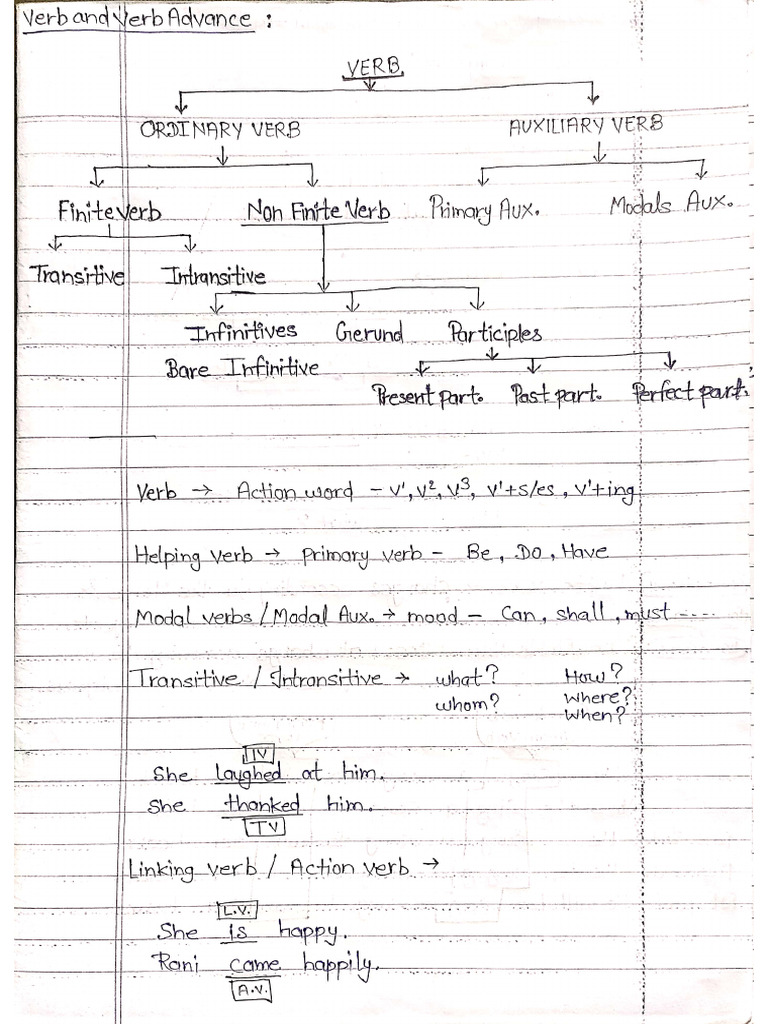 Verb and Verb Advance :
VERB
ORDINARY VERB AUXILIARY VERB
Finite verb Non Finite Verb Primary Aux. Modals Aux.
Transitive Intransitive
Infinitives Gerund Participles
Bare Infinitive
Present part. Past part. Perfect part.
Verb → Action word - V¹, V², V³, V¹+s/es, V¹+ing
Helping verb → primary verb - Be, Do, Have
Modal verbs / Modal Aux. → mood - Can, shall, must ....
Transitive / Intransitive → what? How?
whom? where?
When?
IV
She laughed at him.
She thanked him.
TV
Linking verb / Action verb →
L.V.
She is happy.
Rani came happily.
A.V.